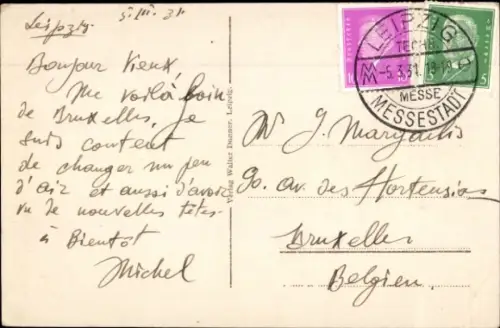 Leipzig 5.III.31
Bonjour Vieux,
Me voilà loin
de Bruxelles. Je
suis content
de changer un peu
d'air et aussi d'avoir
vu de nouvelles têtes.
à Bientôt
Michel
Verlag Walter Daener, Leipzig.
DEUTSCHES
LEIPZIG
TECHN.
-5.3.31.18-19
MESSE
MESSESTADT
5
Mr J. Margailis
90. av. des Hortensias
Bruxelles
Belgien.